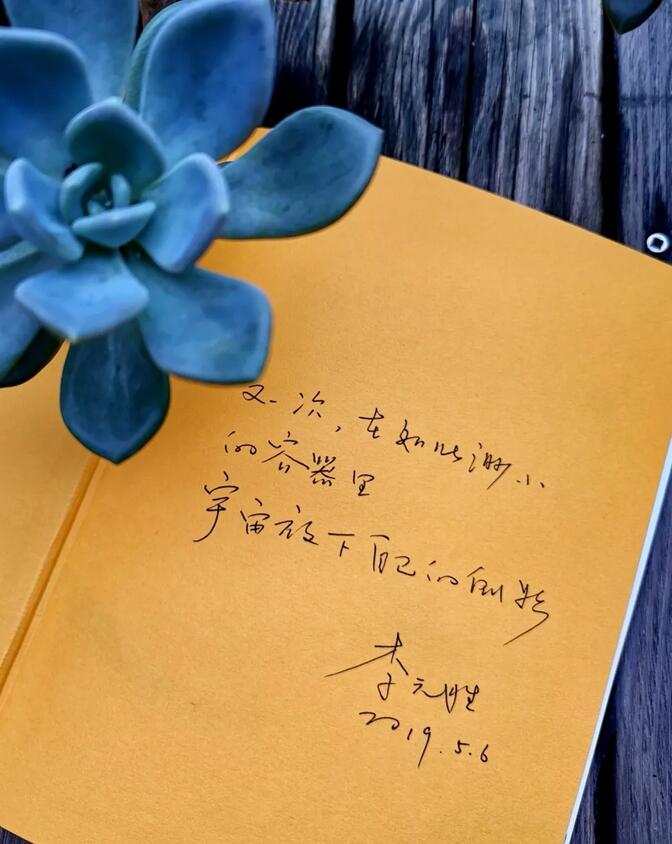 又一次，在如此渺小
的容器里
宇宙放下自己的倒影
李元胜
2019.5.6